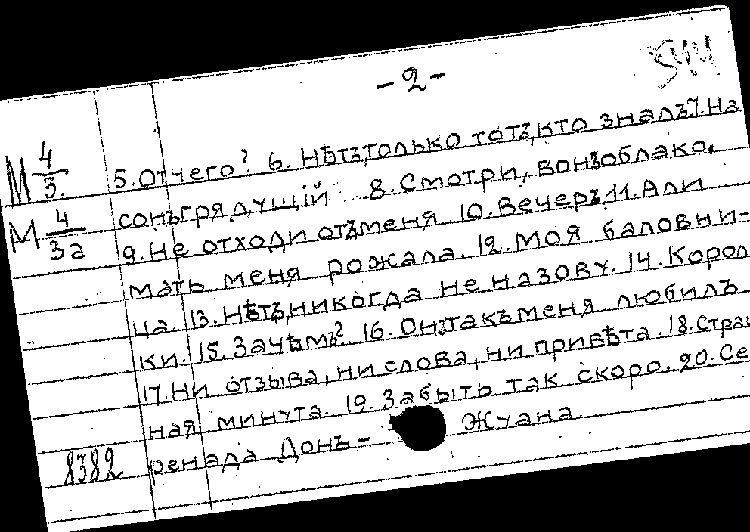 -2-
544
М 4/5. 5.Отчего? 6. Нѣтъ,только тотъ,кто зналъ7.На
М 4/3а сонъгрядущій 8.Смотри, вонъоблако.
9.Не отходи отъменя 10.Вечеръ11.Али
мать меня рожала. 12.Моя баловни-
ца. 13.Нѣтъ,никогда не назову. 14.Корол
ки. 15.Зачѣмъ? 16.Онътакъменя любилъ
17.Ни отзыва,ни слова,ни привѣта.18.Страш
ная минута. 19.Забыть так скоро. 20.Се
8382 ренада Донъ- Жуана